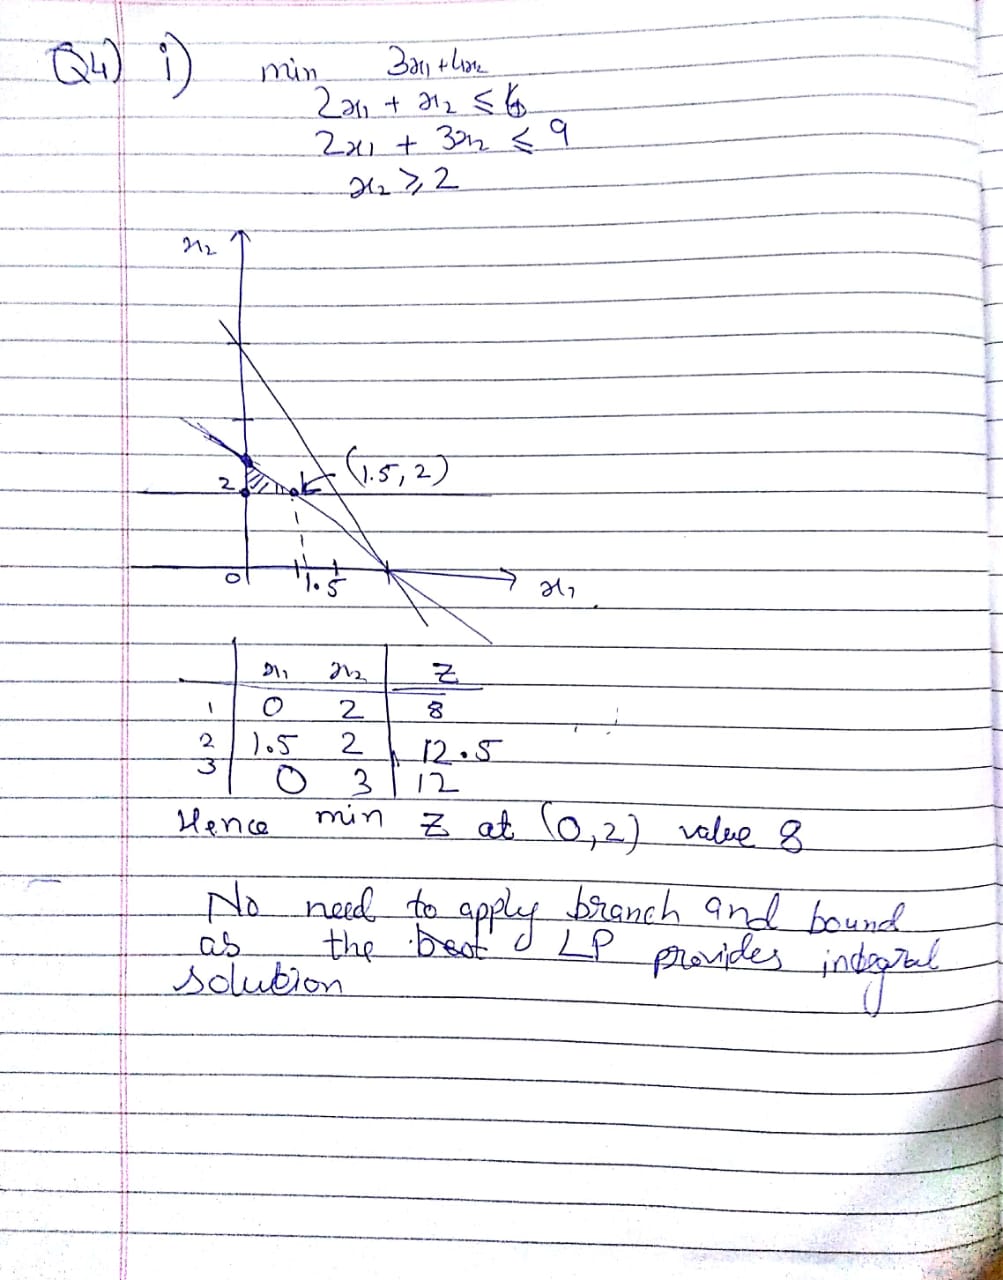 Q4) i) min 3x₁ + 4x₂
2x₁ + x₂ ≤ 6
2x₁ + 3x₂ ≤ 9
x₂ ≥ 2
x₂
(1.5, 2)
2
0 1.5 x₁
x₁ x₂ Z
1 0 2 8
2 1.5 2 12.5
3 0 3 12
Hence min Z at (0,2) value 8
No need to apply branch and bound
as the best LP provides integral
solution